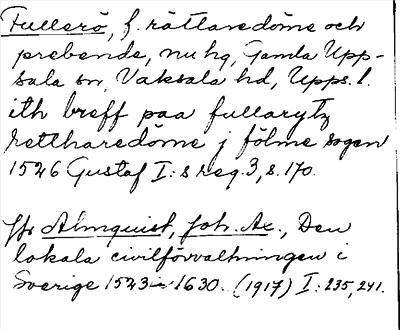 Fullerö, f. rättaredöme och
prebende, nu hg, Gamla Upp-
sala sn, Vaksala hd, Upps. l.
ith breff paa fullarytz
retthäredöme j fölme sogen
1526 Gustaf I:s reg. 3, s. 170.
Jfr Almquist, Joh. Ax., Den
lokala civilförvaltningen i
Sverige 1523-1630. (1917) I: 235, 241.